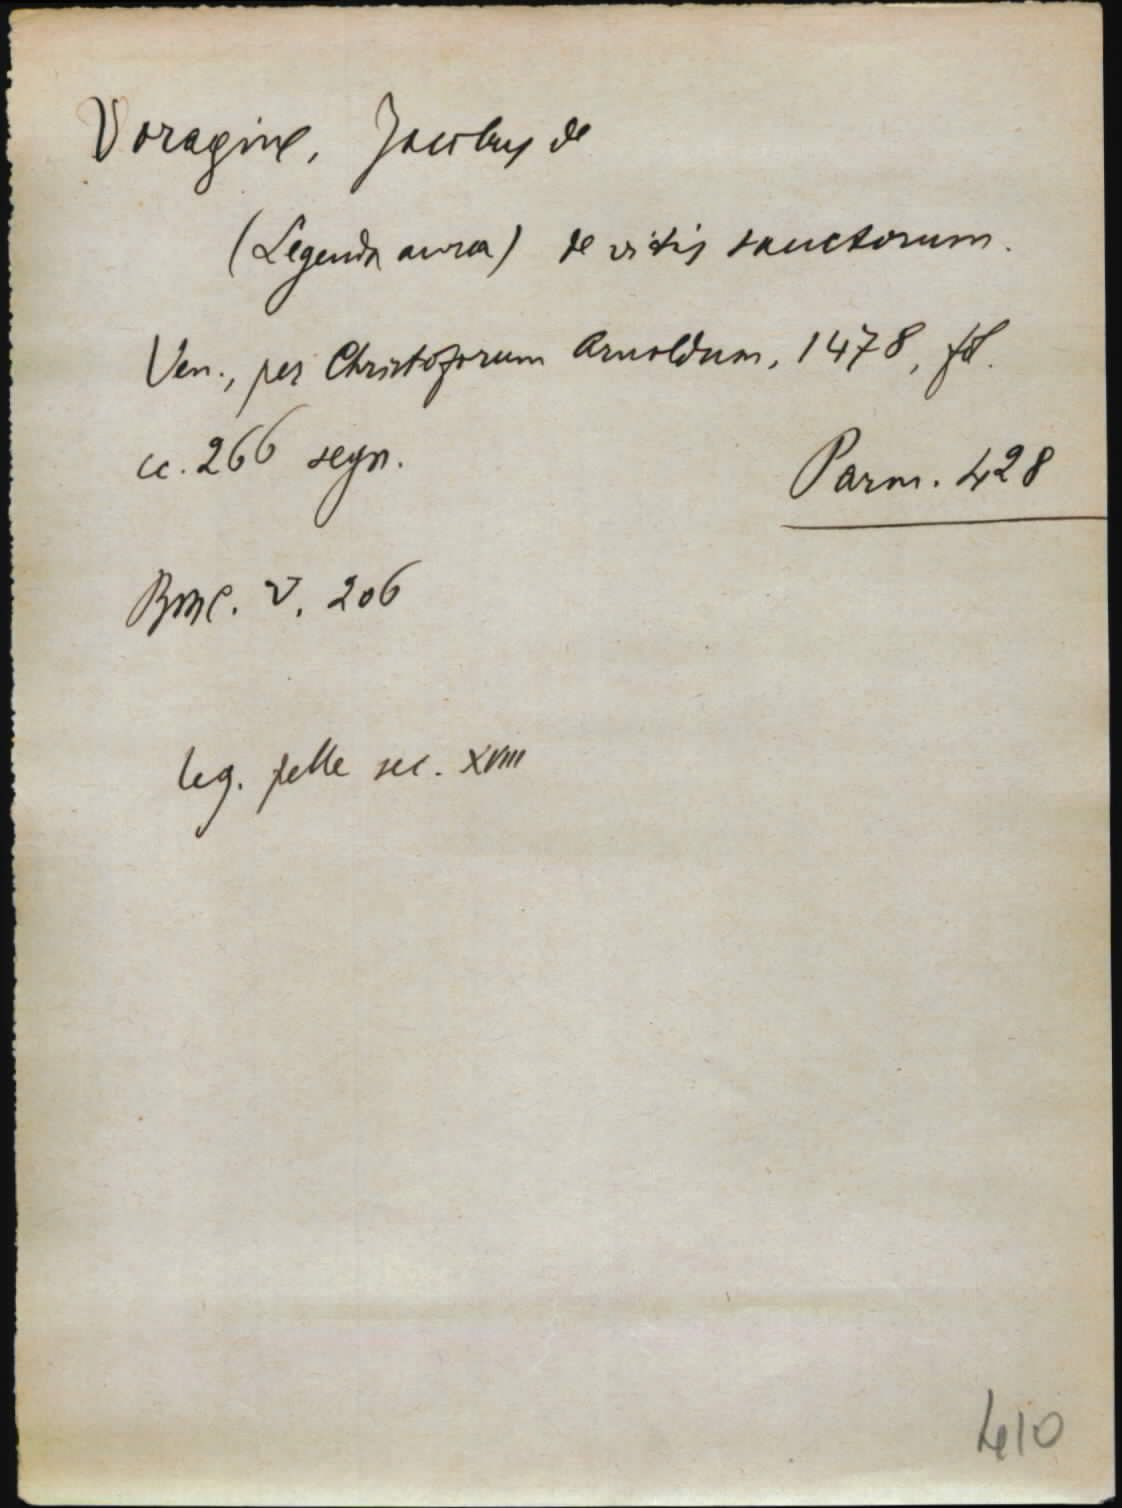 Voragine, Jacobus de
(Legenda aurea) de vitis sanctorum.
Ven., per Christoforum Arnoldum, 1478, fol.
cc. 266 segn.
Parm. 428
BMC. V. 206
leg. pelle sec. XVIII
410